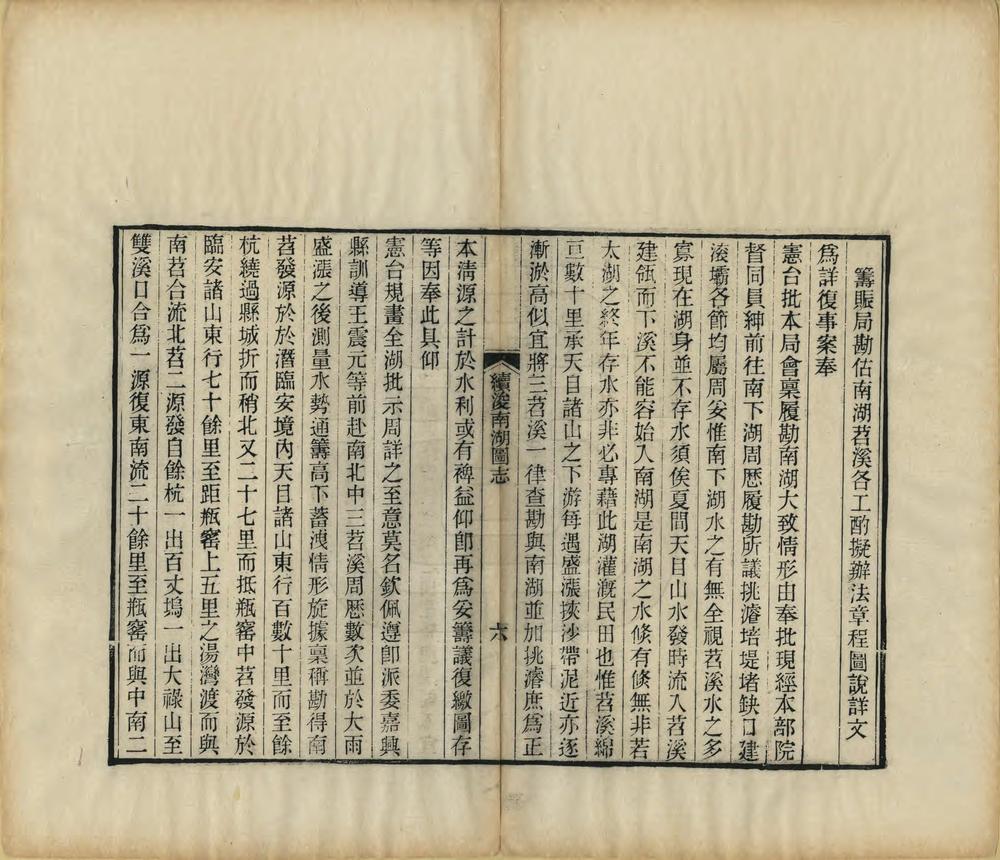 籌賑局勘估南湖苕溪各工酌擬辦法章程圖說詳文
爲詳復事案奉
憲台批本局會稟履勘南湖大致情形由奉批現經本部院
督同員紳前往南下湖周歷履勘所議挑濬培堤堵缺口建
滚壩各節均屬周妥惟南下湖水之有無全視苕溪水之多
寡現在湖身並不存水須俟夏間天目山水發時流入苕溪
建瓴而下溪不能容始入南湖是南湖之水倐有倐無非若
太湖之終年存水亦非必專藉此湖灌漑民田也惟苕溪綿
亘數十里承天目諸山之下游每遇盛漲挾沙帶泥近亦逐
漸淤高似宜將三苕溪一律查勘與南湖並加挑濬庶爲正
續濬南湖圖志
六
本清源之計於水利或有裨益仰卽再爲妥籌議復繳圖存
等因奉此具仰
憲台規畫全湖批示周詳之至意莫名欽佩遵卽派委嘉興
縣訓導王震元等前赴南北中三苕溪周歷數次並於大雨
盛漲之後測量水勢通籌高下蓄洩情形旋據稟稱勘得南
苕發源於於潛臨安境內天目諸山東行百數十里而至餘
杭繞過縣城折而稍北又二十七里而抵瓶窰中苕發源於
臨安諸山東行七十餘里至距瓶窰上五里之湯灣渡而與
南苕合流北苕二源發自餘杭一出百丈塢一出大祿山至
雙溪口合爲一源復東南流二十餘里至瓶窰而與中南二